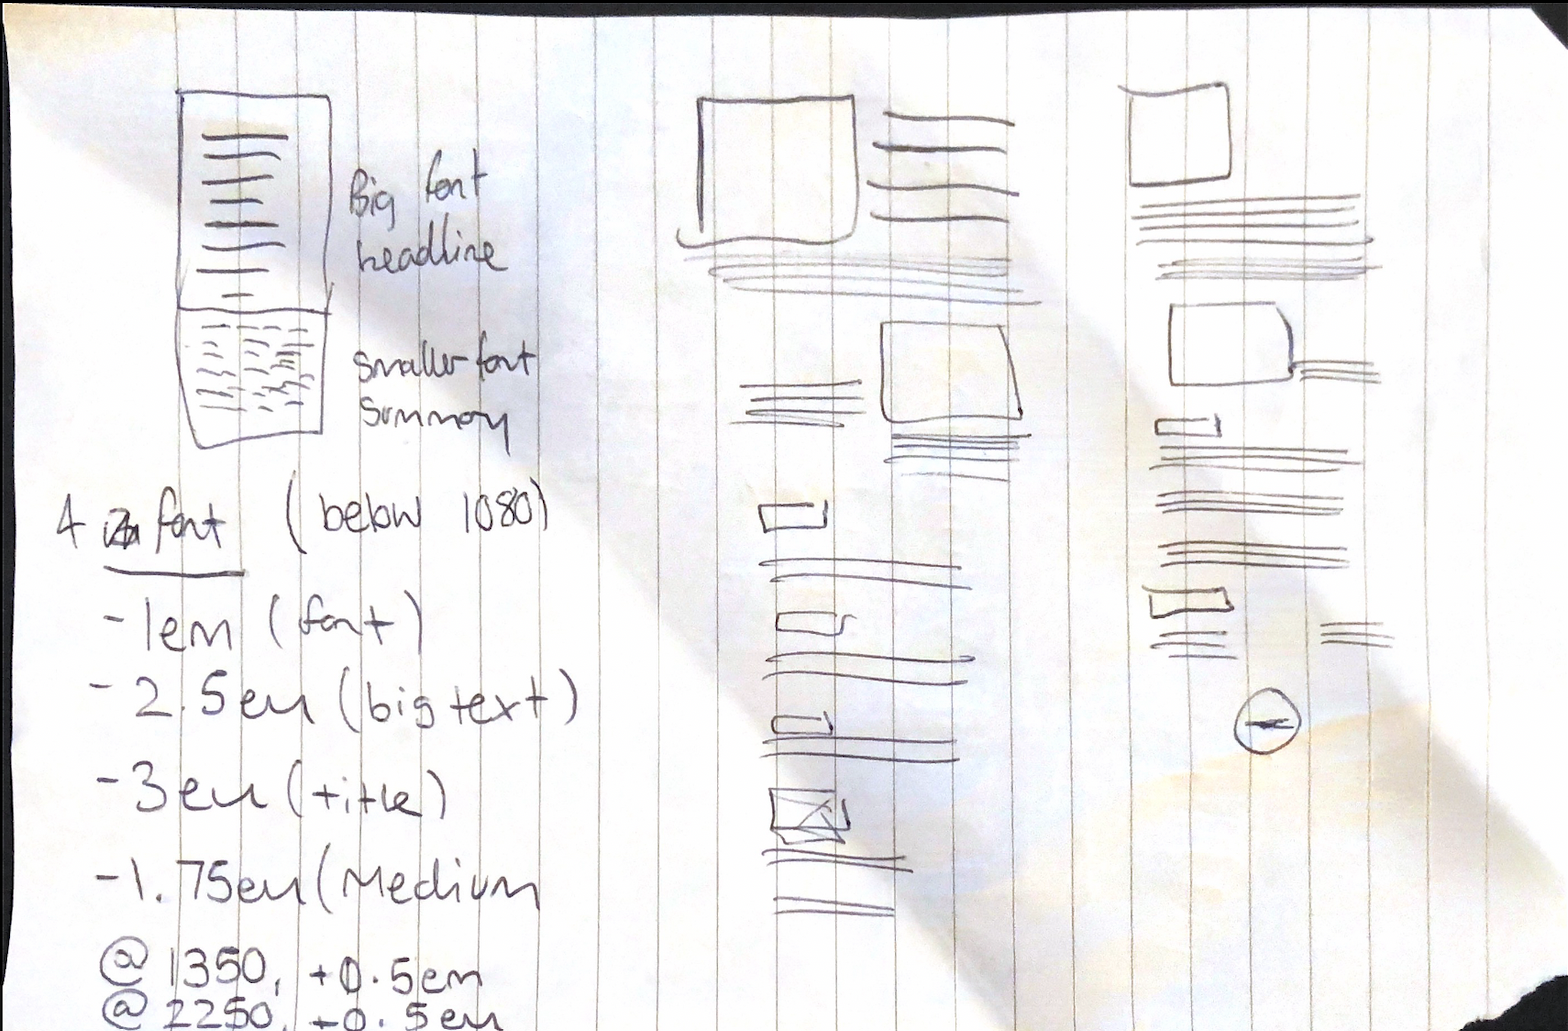 Big font
headline
Smaller font
Summary
4 font (below 1080)
- 1em (font)
- 2.5em (big text)
- 3em (title)
- 1.75em (Medium
@ 1350, +0.5em
@ 2250, +0.5em